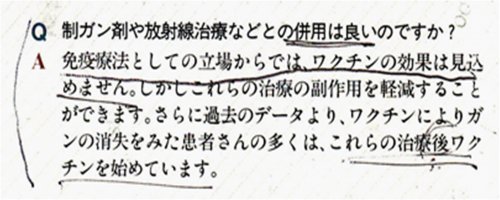 Q 制ガン剤や放射線治療などとの併用は良いのですか?
A 免疫療法としての立場からでは、ワクチンの効果は見込
めません。しかしこれらの治療の副作用を軽減すること
ができます。さらに過去のデータより、ワクチンによりガ
ンの消失をみた患者さんの多くは、これらの治療後ワク
チンを始めています。